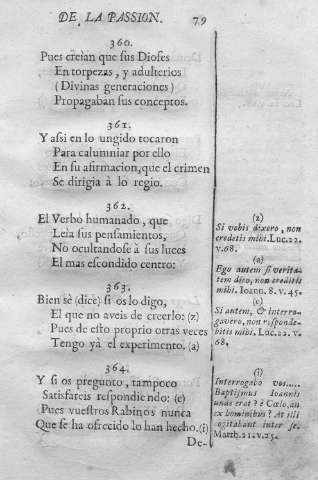 DE LA PASSION. 79
360.
Pues creìan que sus Dioses
En torpezas, y adulterios
(Divinas generaciones)
Propagaban sus conceptos.
361.
Y assi en lo ungido tocaron
Para calumniar por ello
En su afirmacion, que el crimen
Se dirigia à lo regio.
362.
El Verbo humanado, que
Leìa sus pensamientos,
No ocultandose à sus luces
El mas escondido centro:
363.
Bien sè (dice) si os lo digo,
El que no aveis de creerlo: (z)
Pues de esto proprio otras veces
Tengo yà el experimento. (a)
364.
Y si os pregunto, tampoco
Satisfareis respondiendo: (e)
Pues vuestros Rabinos nunca
Que se ha ofrecido lo han hecho. (i)
De-
(z)
Si vobis dixero, non
credetis mihi. Luc. 22.
v. 68.
(a)
Ego autem si verita-
tem dico, non creditis
mihi. Ioann. 8. v. 45.
(e)
Si autem, & interro-
gavero, non responde-
bitis mihi. Luc. 22. v.
68.
(i)
Interrogabo vos....
Baptismus Ioannis
unde erat? è Cœlo, an
ex hominibus? At illi
cogitabant inter se.
Matth. 21. v. 25.